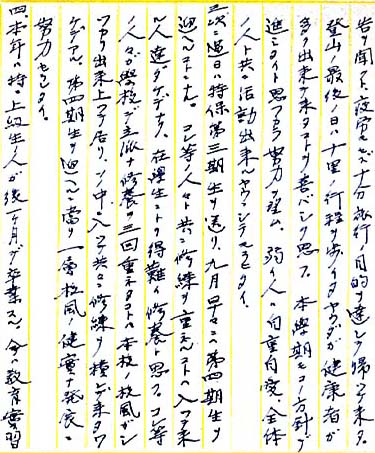 告ヲ聞クト、疲労モセズ十分旅行ノ目的ヲ達シテ帰ッテ来タ。
登山ノ最後ノ日ハ十里ノ行程ヲ歩イタヤウダガ健康者ガ
多ク出来テ来タコトヲ喜バシク思フ。本学期モコノ方針デ
進ミタイト思フカラ努力ヲ望ム。弱イ人ハ自重自愛、全体
ノ人ト共ニ活動出来ルヤウニシテモラヒタイ。
三、次ニ過日ハ特保第三期生ヲ送リ、九月早々ニ第四期生ヲ
迎ヘルコトニナル。コレ等ノ人々ト共ニ修練ヲ重ネルコトハ入ッテ来
ル人達ダケデナク、在学生ニトリ得難イ修養ト思フ。コレ等
ノ人々ガ学校デ立派ナ修養ヲ三回重ネタコトハ本校ノ校風ガシ
ッカリ出来上ッテ居リ、ソノ中ニ入ッテ共ニ修練ヲ積ンデ来タワ
ケデアル。第四期生ヲ迎ヘルニ当リ一層校風ノ健実ナ発展ニ
努力セラレタイ。
四、本年ハ特ニ上級生ノ人ガ後一ヶ月デ卒業スル。今ハ教育実習